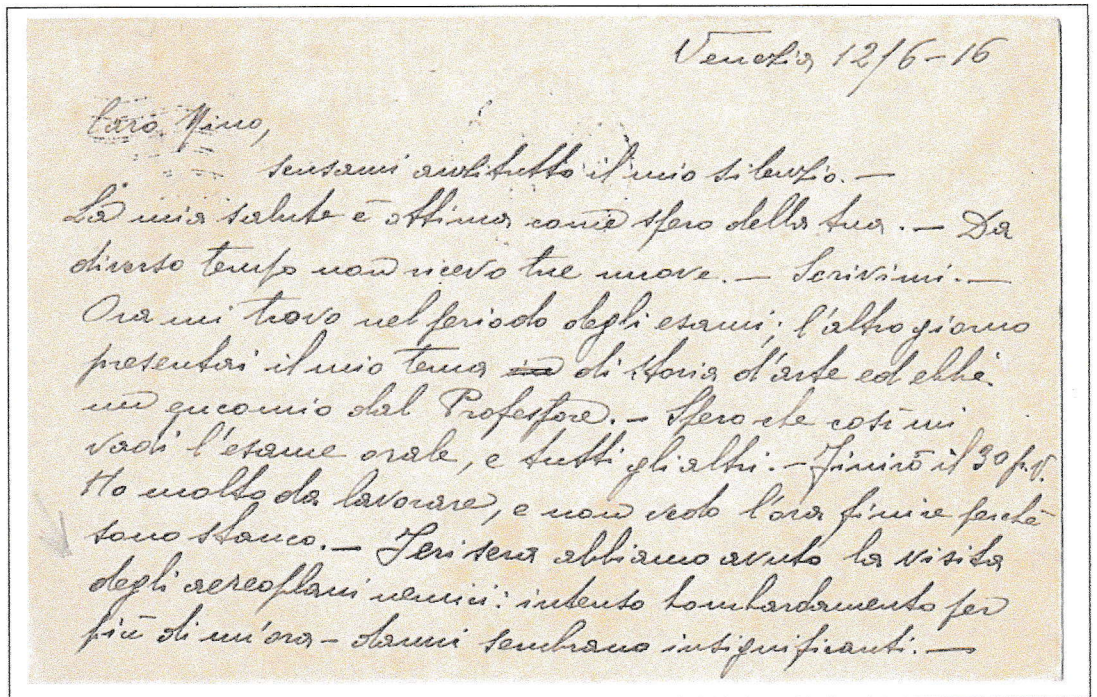 Venezia 12/6-16
Caro Nino,
scusami anzitutto il mio silenzio. —
La mia salute è ottima come spero della tua. — Da
diverso tempo non ricevo tue nuove. — Scrivimi. —
Ora mi trovo nel periodo degli esami; l'altro giorno
presentai il mio tema di storia d'arte ed ebbi
un encomio dal Professore. — Spero che così mi
vadi l'esame orale, e tutti gli altri. — Finirò il 30 p.v.
Ho molto da lavorare, e non vedo l'ora finire perchè
sono stanco. — Jeri sera abbiamo avuto la visita
degli aereoplani nemici: intenso bombardamento per
più di un'ora - danni sembrano insignificanti. —